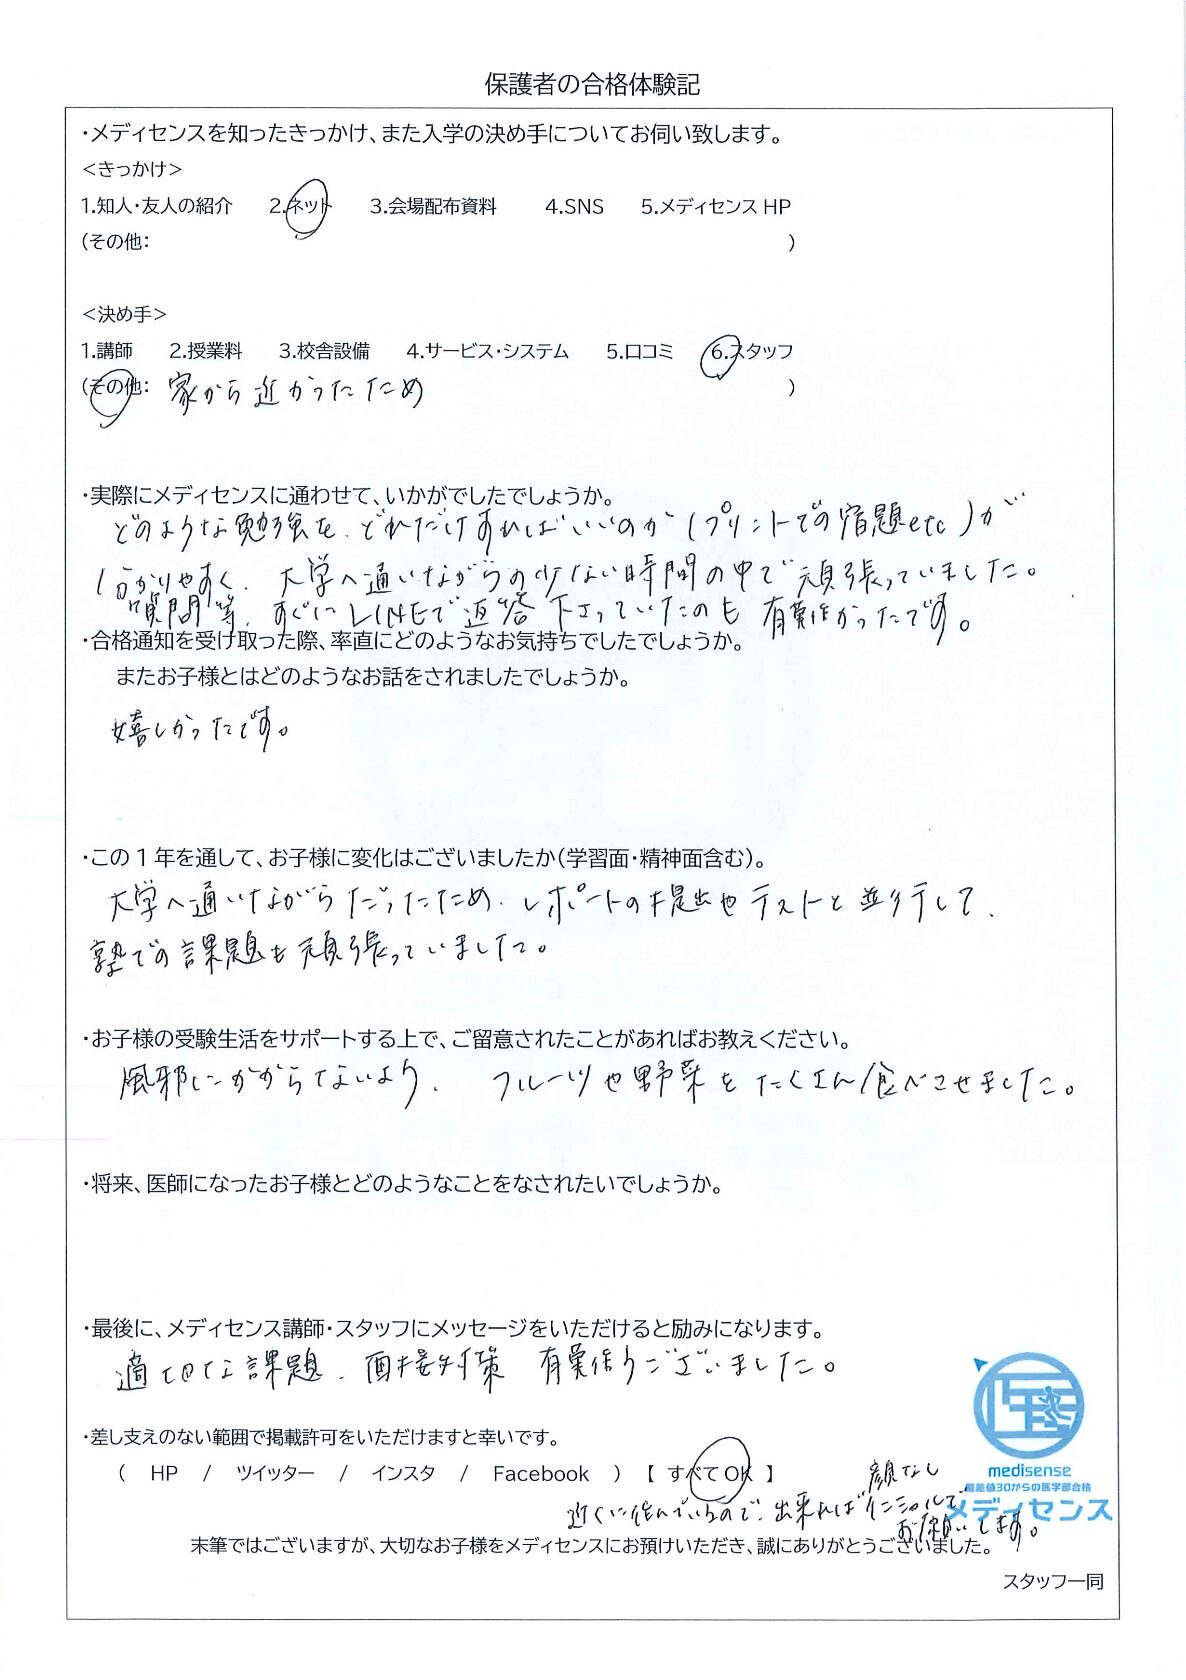 保護者の合格体験記
・メディセンスを知ったきっかけ、また入学の決め手についてお伺い致します。
<きっかけ>
1.知人・友人の紹介　2.ネット　3.会場配布資料　4.SNS　5.メディセンス HP
(その他：　)
<決め手>
1.講師　2.授業料　3.校舎設備　4.サービス・システム　5.口コミ　6.スタッフ
(その他：家から近かったため　)
・実際にメディセンスに通わせて、いかがでしたでしょうか。
どのような勉強を、どれだけすればいいのか(プリントでの宿題etc)が
分かりやすく、大学へ通いながらの少ない時間の中で頑張っていました。
質問等、すぐにLINEで返答下さっていたのも有難かったです。
・合格通知を受け取った際、率直にどのようなお気持ちでしたでしょうか。
またお子様とはどのようなお話をされましたでしょうか。
嬉しかったです。
・この１年を通して、お子様に変化はございましたか(学習面・精神面含む)。
大学へ通いながらだったため、レポートの提出やテストと並行して、
塾での課題も頑張っていました。
・お子様の受験生活をサポートする上で、ご留意されたことがあればお教えください。
風邪にかからないよう、フルーツや野菜をたくさん食べさせました。
・将来、医師になったお子様とどのようなことをなされたいでしょうか。
・最後に、メディセンス講師・スタッフにメッセージをいただけると励みになります。
適切な課題、面接対策 有難うございました。
・差し支えのない範囲で掲載許可をいただけますと幸いです。
(　HP　/　ツイッター　/　インスタ　/　Facebook　)【 すべてOK 】
顔なし
近くに住んでいるので、出来ればイニシャルで
お願いします。
medisense
偏差値30からの医学部合格
メディセンス
末筆ではございますが、大切なお子様をメディセンスにお預けいただき、誠にありがとうございました。
スタッフ一同